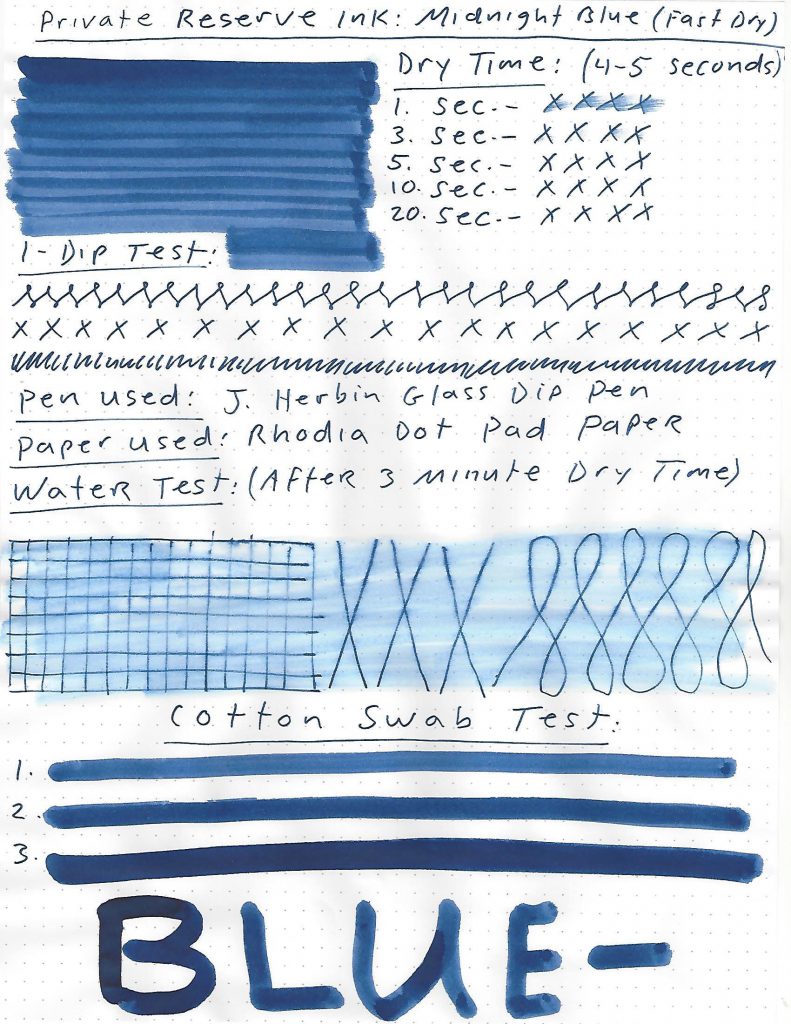 Private Reserve Ink: Midnight Blue (Fast Dry)
Dry Time: (4-5 seconds)
1. Sec.- X X X X
3. Sec.- X X X X
5. Sec.- X X X X
10. Sec.- X X X X
20. Sec.- X X X X
1-Dip Test:
X X X X X X X X X X X X X X X X X X
Pen Used: J. Herbin Glass Dip Pen
Paper Used: Rhodia Dot Pad Paper
Water Test: (After 3 Minute Dry Time)
Cotton Swab Test:
1.
2.
3.
BLUE-